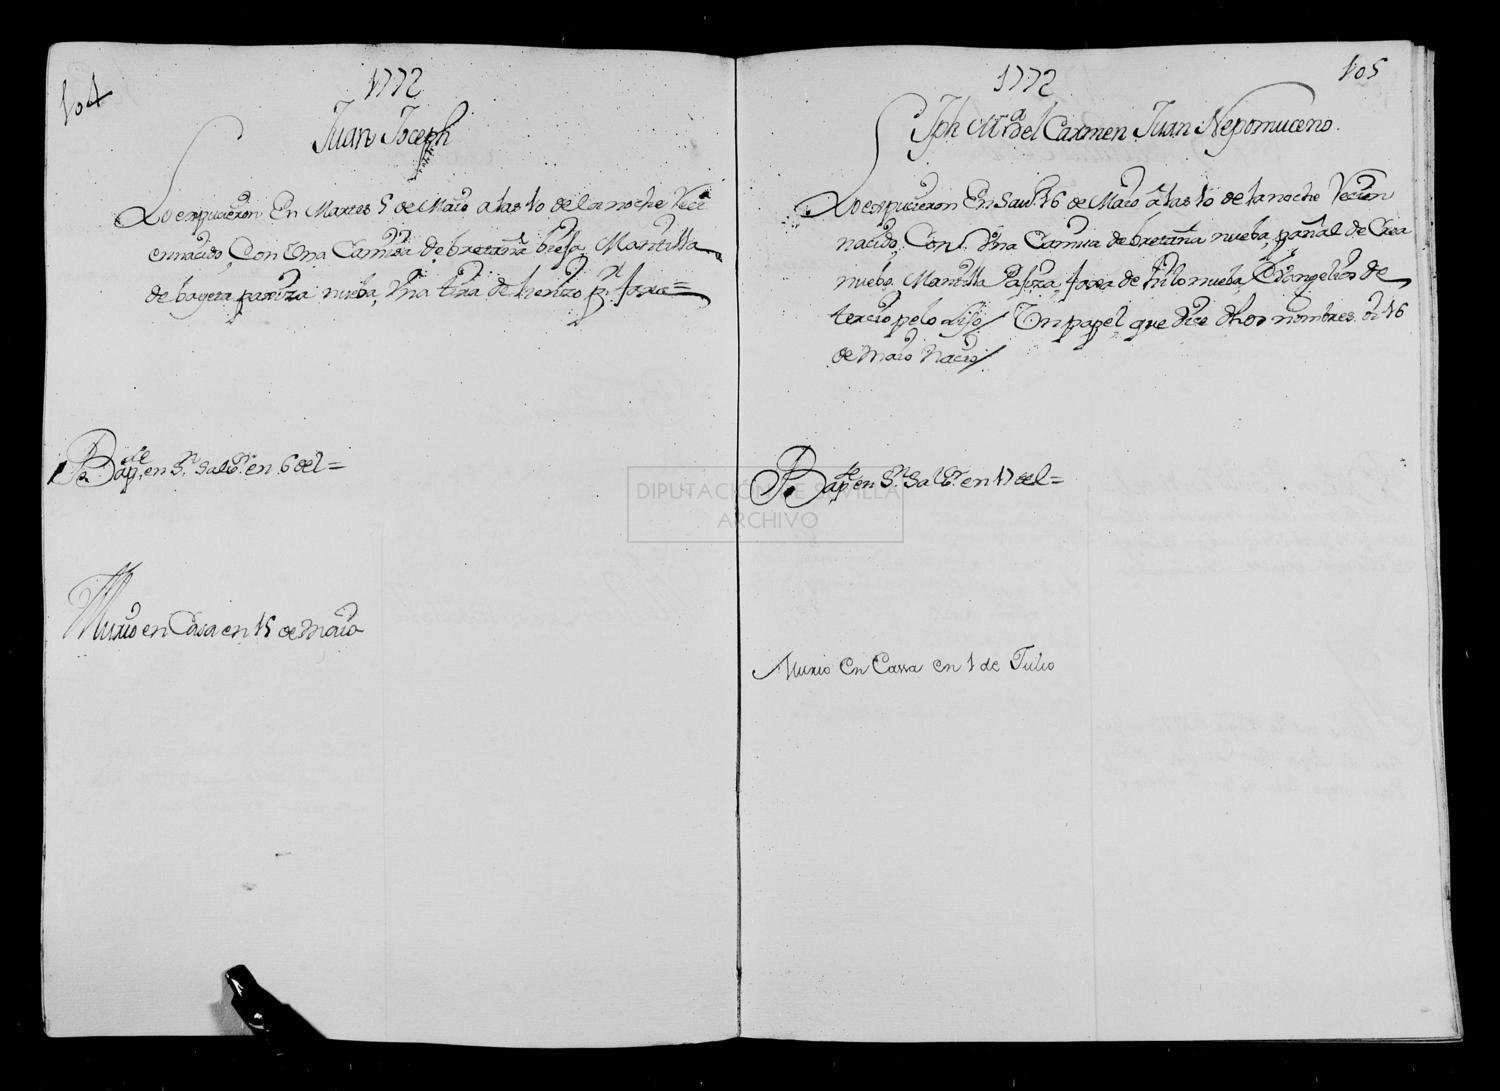 104
1772
Juan Joseph
Lo expucieron En Martes 5 de Maio a las 10 de la noche Reci
en nacido, Con Una Camisa de bretaña bieja, Mantilla
de bayeta pariza nueba, Una tira de lienzo pr. faxa=
Bapde. en Sn. Salbr. en 6 del=
Murio en Casa en 15 de Maio
105
1772
Jph Ma. del Carmen Juan Nepomuceno.
Lo expucieron En Sabo. 16 de Maio a las 10 de la noche Recien
nacido, Con Una Camisa de bretaña nueba, pañal de Crea
nuebo, Mantilla Pariza, faxa de hilo nueba, Evangelios de
terciopelo Liso/ Un papel que dice dhos nombres. di 16
de Maio Nacio/
Bapde. en Sn. Salbr. en 17 del=
Murio En Cassa en 1 de Julio
DIPUTACIÓN DE SEVILLA
ARCHIVO